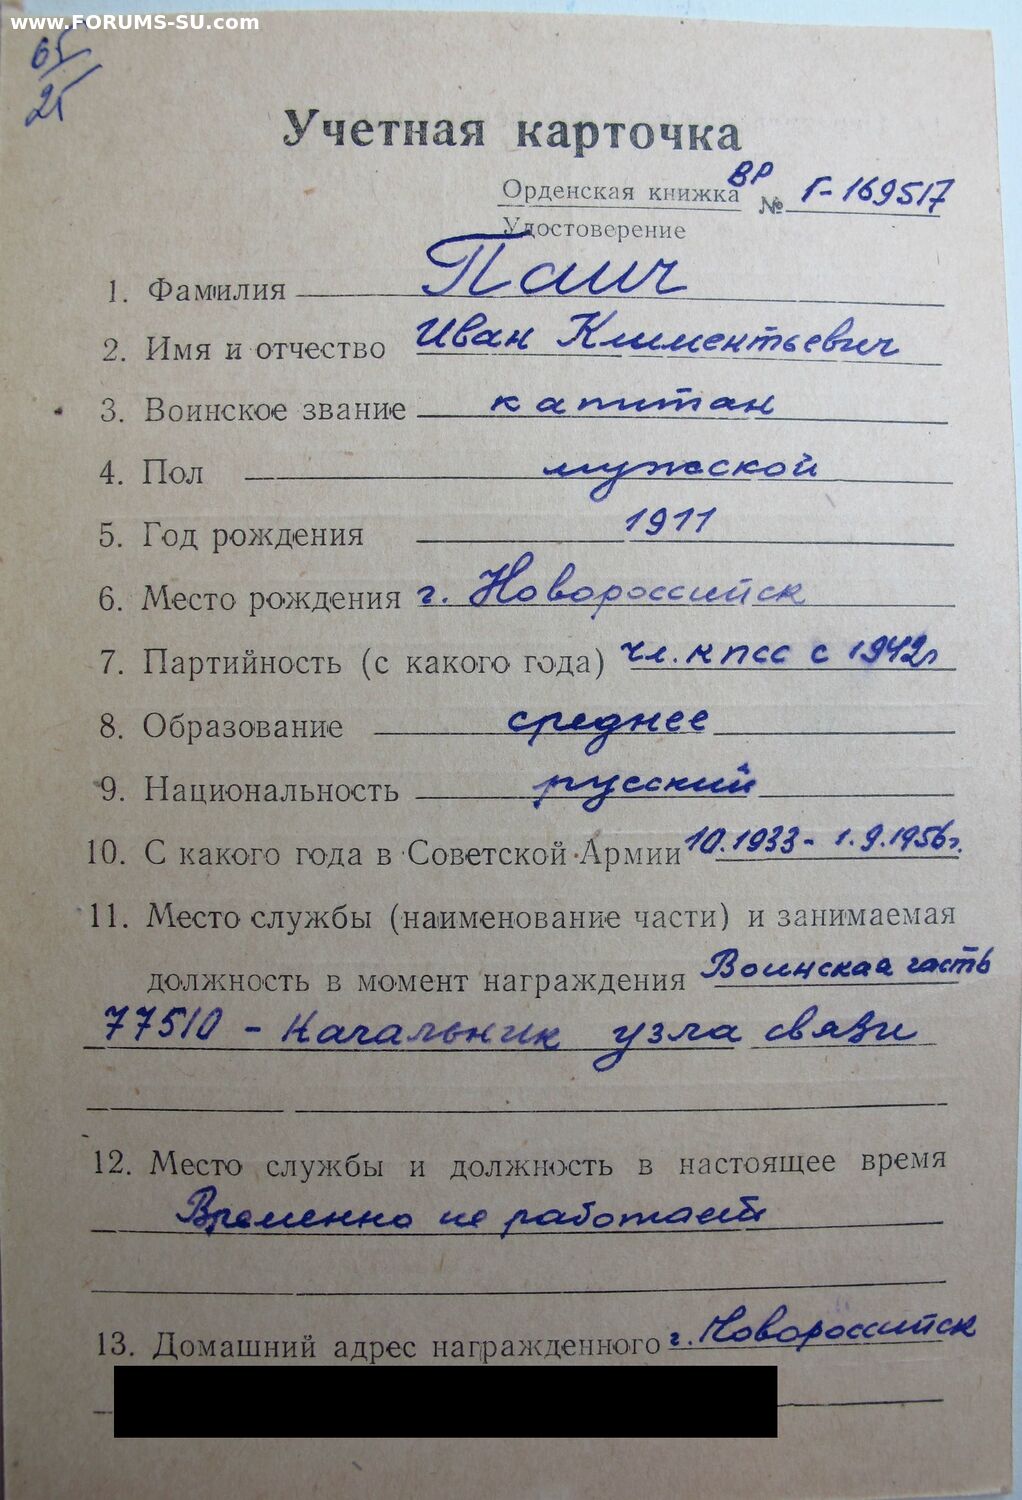 www.FORUMS-SU.com
65
25
Учетная карточка
Орденская книжка ВР № Г-169517
Удостоверение
1. Фамилия Паич
2. Имя и отчество Иван Климентьевич
3. Воинское звание капитан
4. Пол мужской
5. Год рождения 1911
6. Место рождения г. Новороссийск
7. Партийность (с какого года) чл. КПСС с 1942г
8. Образование среднее
9. Национальность русский
10. С какого года в Советской Армии 10.1933 - 1.9.1956г.
11. Место службы (наименование части) и занимаемая
должность в момент награждения Воинская часть
77510 - Начальник узла связи
12. Место службы и должность в настоящее время
Временно не работает
13. Домашний адрес награжденного г. Новороссийск